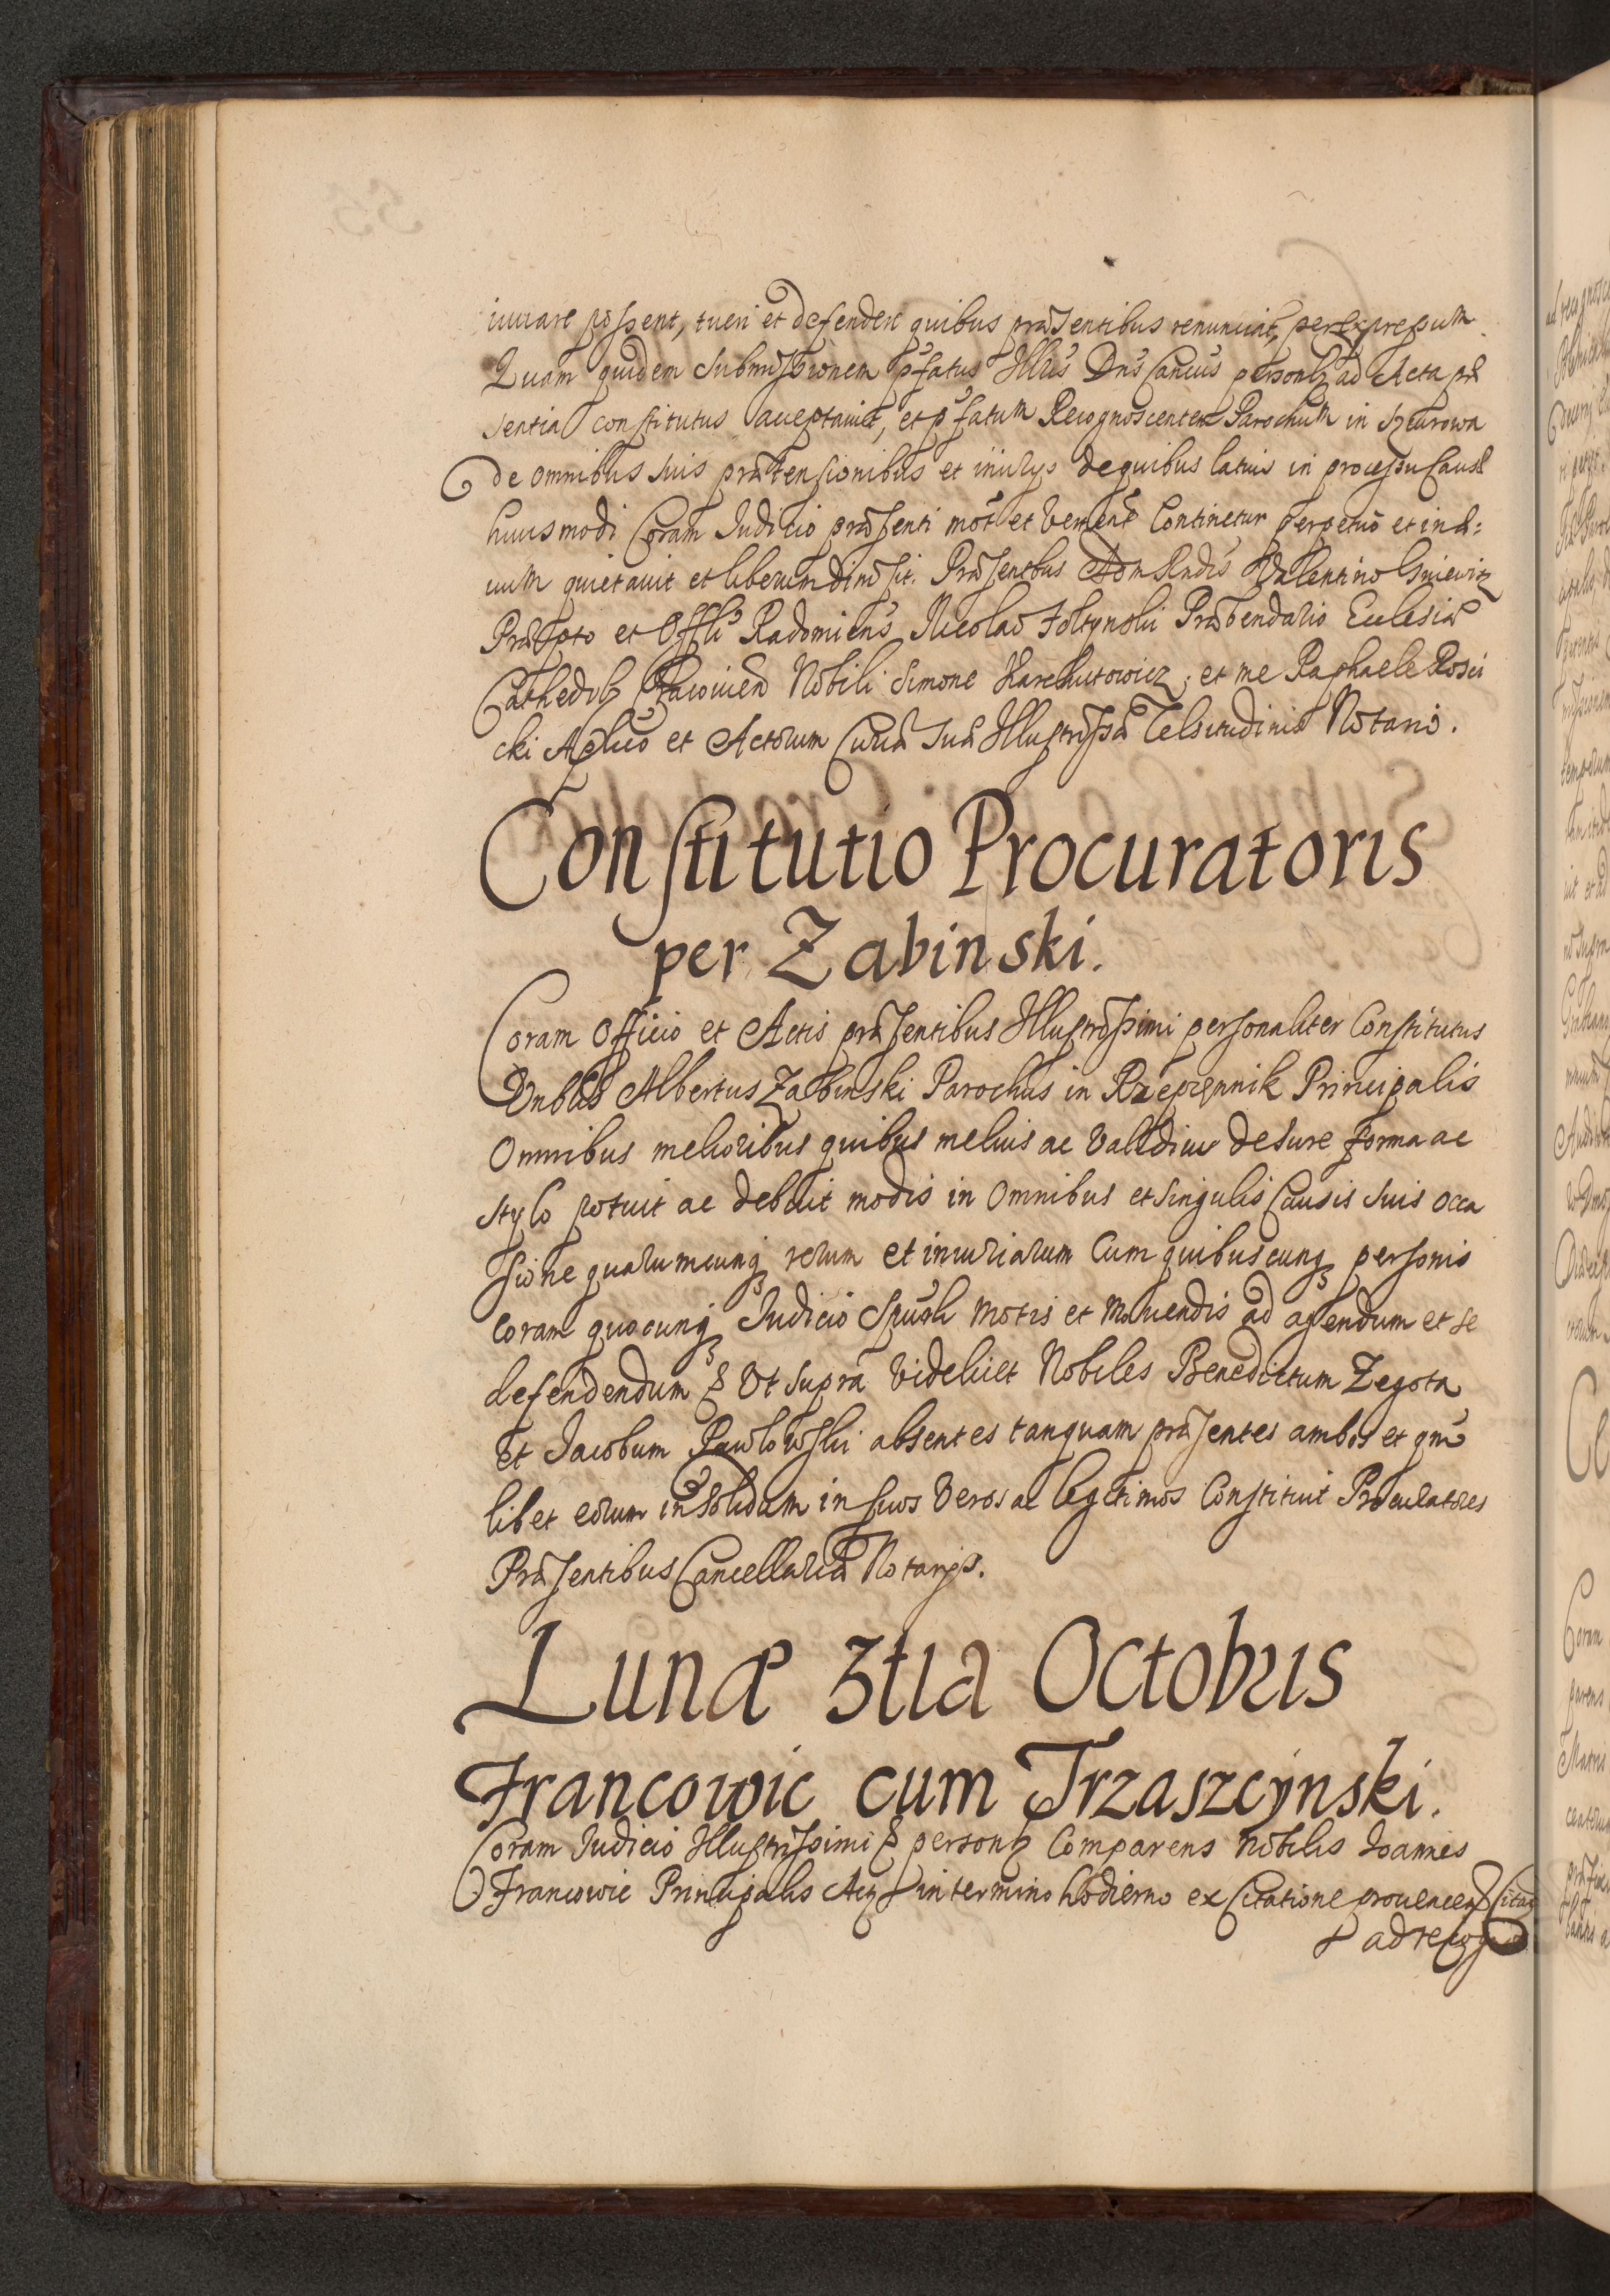 iuuare possent, tueri et defendere quibus præsentibus renunciat, per expressum
Quam quidem Submissionem pfatus Illus Dns Cancus personlr ad Acta præ
sentia constitutus acceptauit, et pfatum Recognoscentem Parochum in Szcurowa
de omnibus suis prætensionibus et iniurys de quibus latius in processu Causæ
huiusmodi Coram Iudicio præsenti mot et Vertent Continetur perpetuo et in æ:
uum quietauit et liberum dimisit. Præsentbus Adm Rndis Valentino Gniewisz
Præpto et Offli Radomiens Nicolao Foltynski Præbendario Ecclesiæ
Cathedrlr Cracouien Nobili Simone Harchutowicz, et me Raphaele Rosci
cki Aplico et Actorum Curiæ Suæ Illustrissæ Celsitudinis Notario.
Constitutio Procuratoris
per Zabinski.
Coram Officio et Actis præsentibus Illustrissimi personaliter Constitutus
Vnblis Albertus Zabinski Parochus in Rzepiennik Principalis
Omnibus melioribus quibus melius ac Validius de Iure forma ac
stylo potuit ac debuit modis in Omnibus et Singulis Causis suis occa
sione quarumcunq rerum et iniuriarum Cum quibuscunq personis
Coram quocunq Iudicio Spuali motis et mouendis ad agendum et se
defendendum & Vt supra Videlicet Nobiles Benedictum Zegota
et Iacobum Pawlowski absentes tanquam præsentes ambos et qm
libet eorum in Solidum in suos Veros ac legitimos Constituit Procuratores
Præsentibus Cancellariæ Notarys.
Lunæ 3tia Octobris
Francowic cum Trzaszcynski.
Coram Iudicio Illustrissimi & personlr Comparens Nobilis Ioannes
Francowic Principalis Actr in termino hodierno ex Citatione proueniens Citat
ad recog